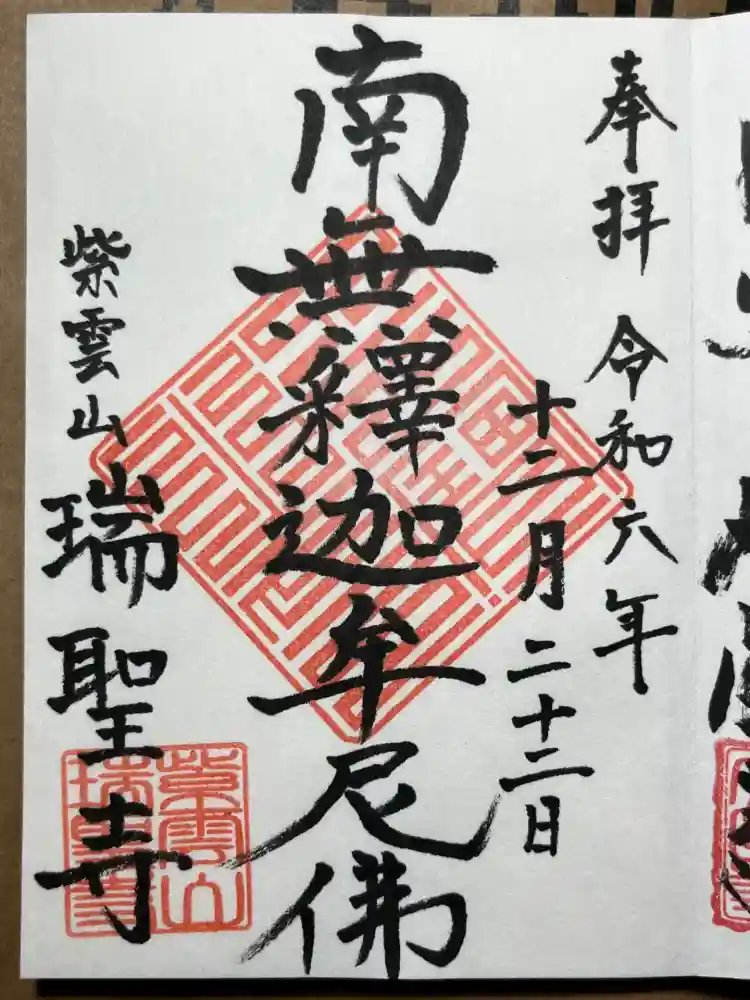 奉拝 令和六年
十二月二十二日
南無釋迦牟尼佛
紫雲山 瑞聖寺
紫雲山
瑞聖寺